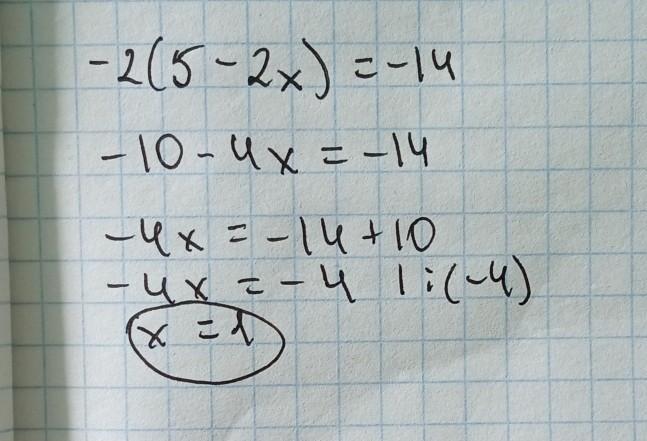 -2(5-2x) = -14
-10-4x = -14
-4x = -14+10
-4x = -4 |:(-4)
x = 1